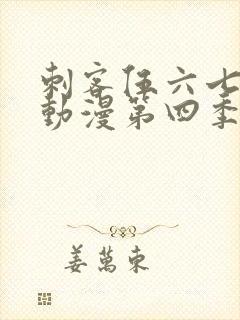 刺客伍六七
動漫第四季
姜萬東